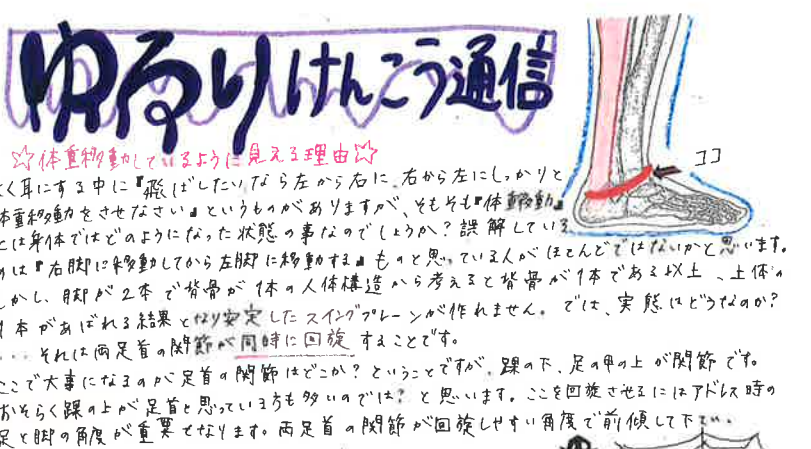 ゆるりけんこう通信
☆体重移動しているように見える理由☆
ココ
よく耳にする中に『飛ばしたいなら左から右に、右から左にしっかりと
体重移動をさせなさい』というものがありますが、そもそも『体重移動』
とは身体ではどのようになった状態の事なのでしょうか？誤解している
のは『右脚に移動してから左脚に移動する』ものと思っている人がほとんどではないかと思います。
しかし、脚が2本で背骨が1本の人体構造から考えると背骨が1本である以上、上体の
1本があばれる結果となり安定したスイングプレーンが作れません。では、実態はどうなのか？
… それは両足首の関節が同時に回旋することです。
ここで大事になるのが足首の関節はどこか？ということですが、踝の下、足の甲の上が関節です。
おそらく踝の上が足首と思っている方も多いのでは？と思います。ここを回旋させるにはアドレス時の
足と脚の角度が重要となります。両足首の関節が回旋しやすい角度で前傾して下さい。